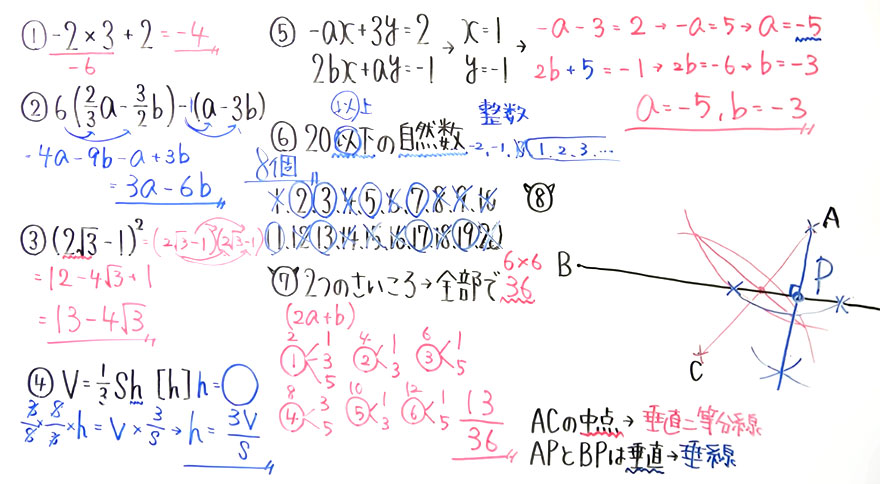 ① -2×3+2=-4
-6
② 6(2/3a-3/2b)-(a-3b)
=4a-9b-a+3b
=3a-6b
③ (2√3-1)²=(2√3-1)(2√3-1)
=12-4√3+1
=13-4√3
④ V=1/3Sh [h] h=◯
h=V×3/S→h=3V/S
⑤ -ax+3y=2
2bx+ay=-1
→ x=1
y=-1
→ -a-3=2→-a=5→a=-5
2b+5=-1→2b=-6→b=-3
a=-5, b=-3
以上
整数
⑥ 20以下の自然数 -2,-1,0,1,2,3,…
8個
1.2.3.4.5.6.7.8.9.10
11.12.13.14.15.16.17.18.19.20
⑦ 2つのさいころ→全部で36
6×6
(2a+b)
2 ① 1 3 5
4 ② 1 3
6 ③ 1 5
8 ④ 3 5
10 ⑤ 1 3
12 ⑥ 1 5
13/36
⑧
A
B
P
C
ACの中点→垂直二等分線
APとBPは垂直→垂線